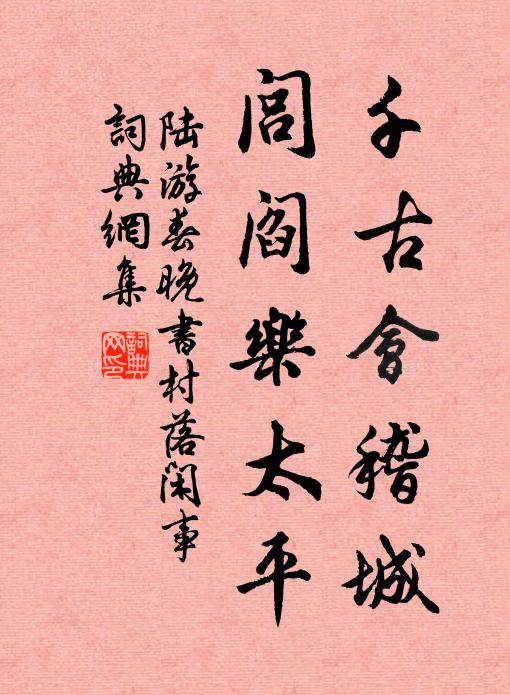 千古會稽城
閭閻樂太平
陆游春晚書村落闲事
詞典網集
詞典
网印